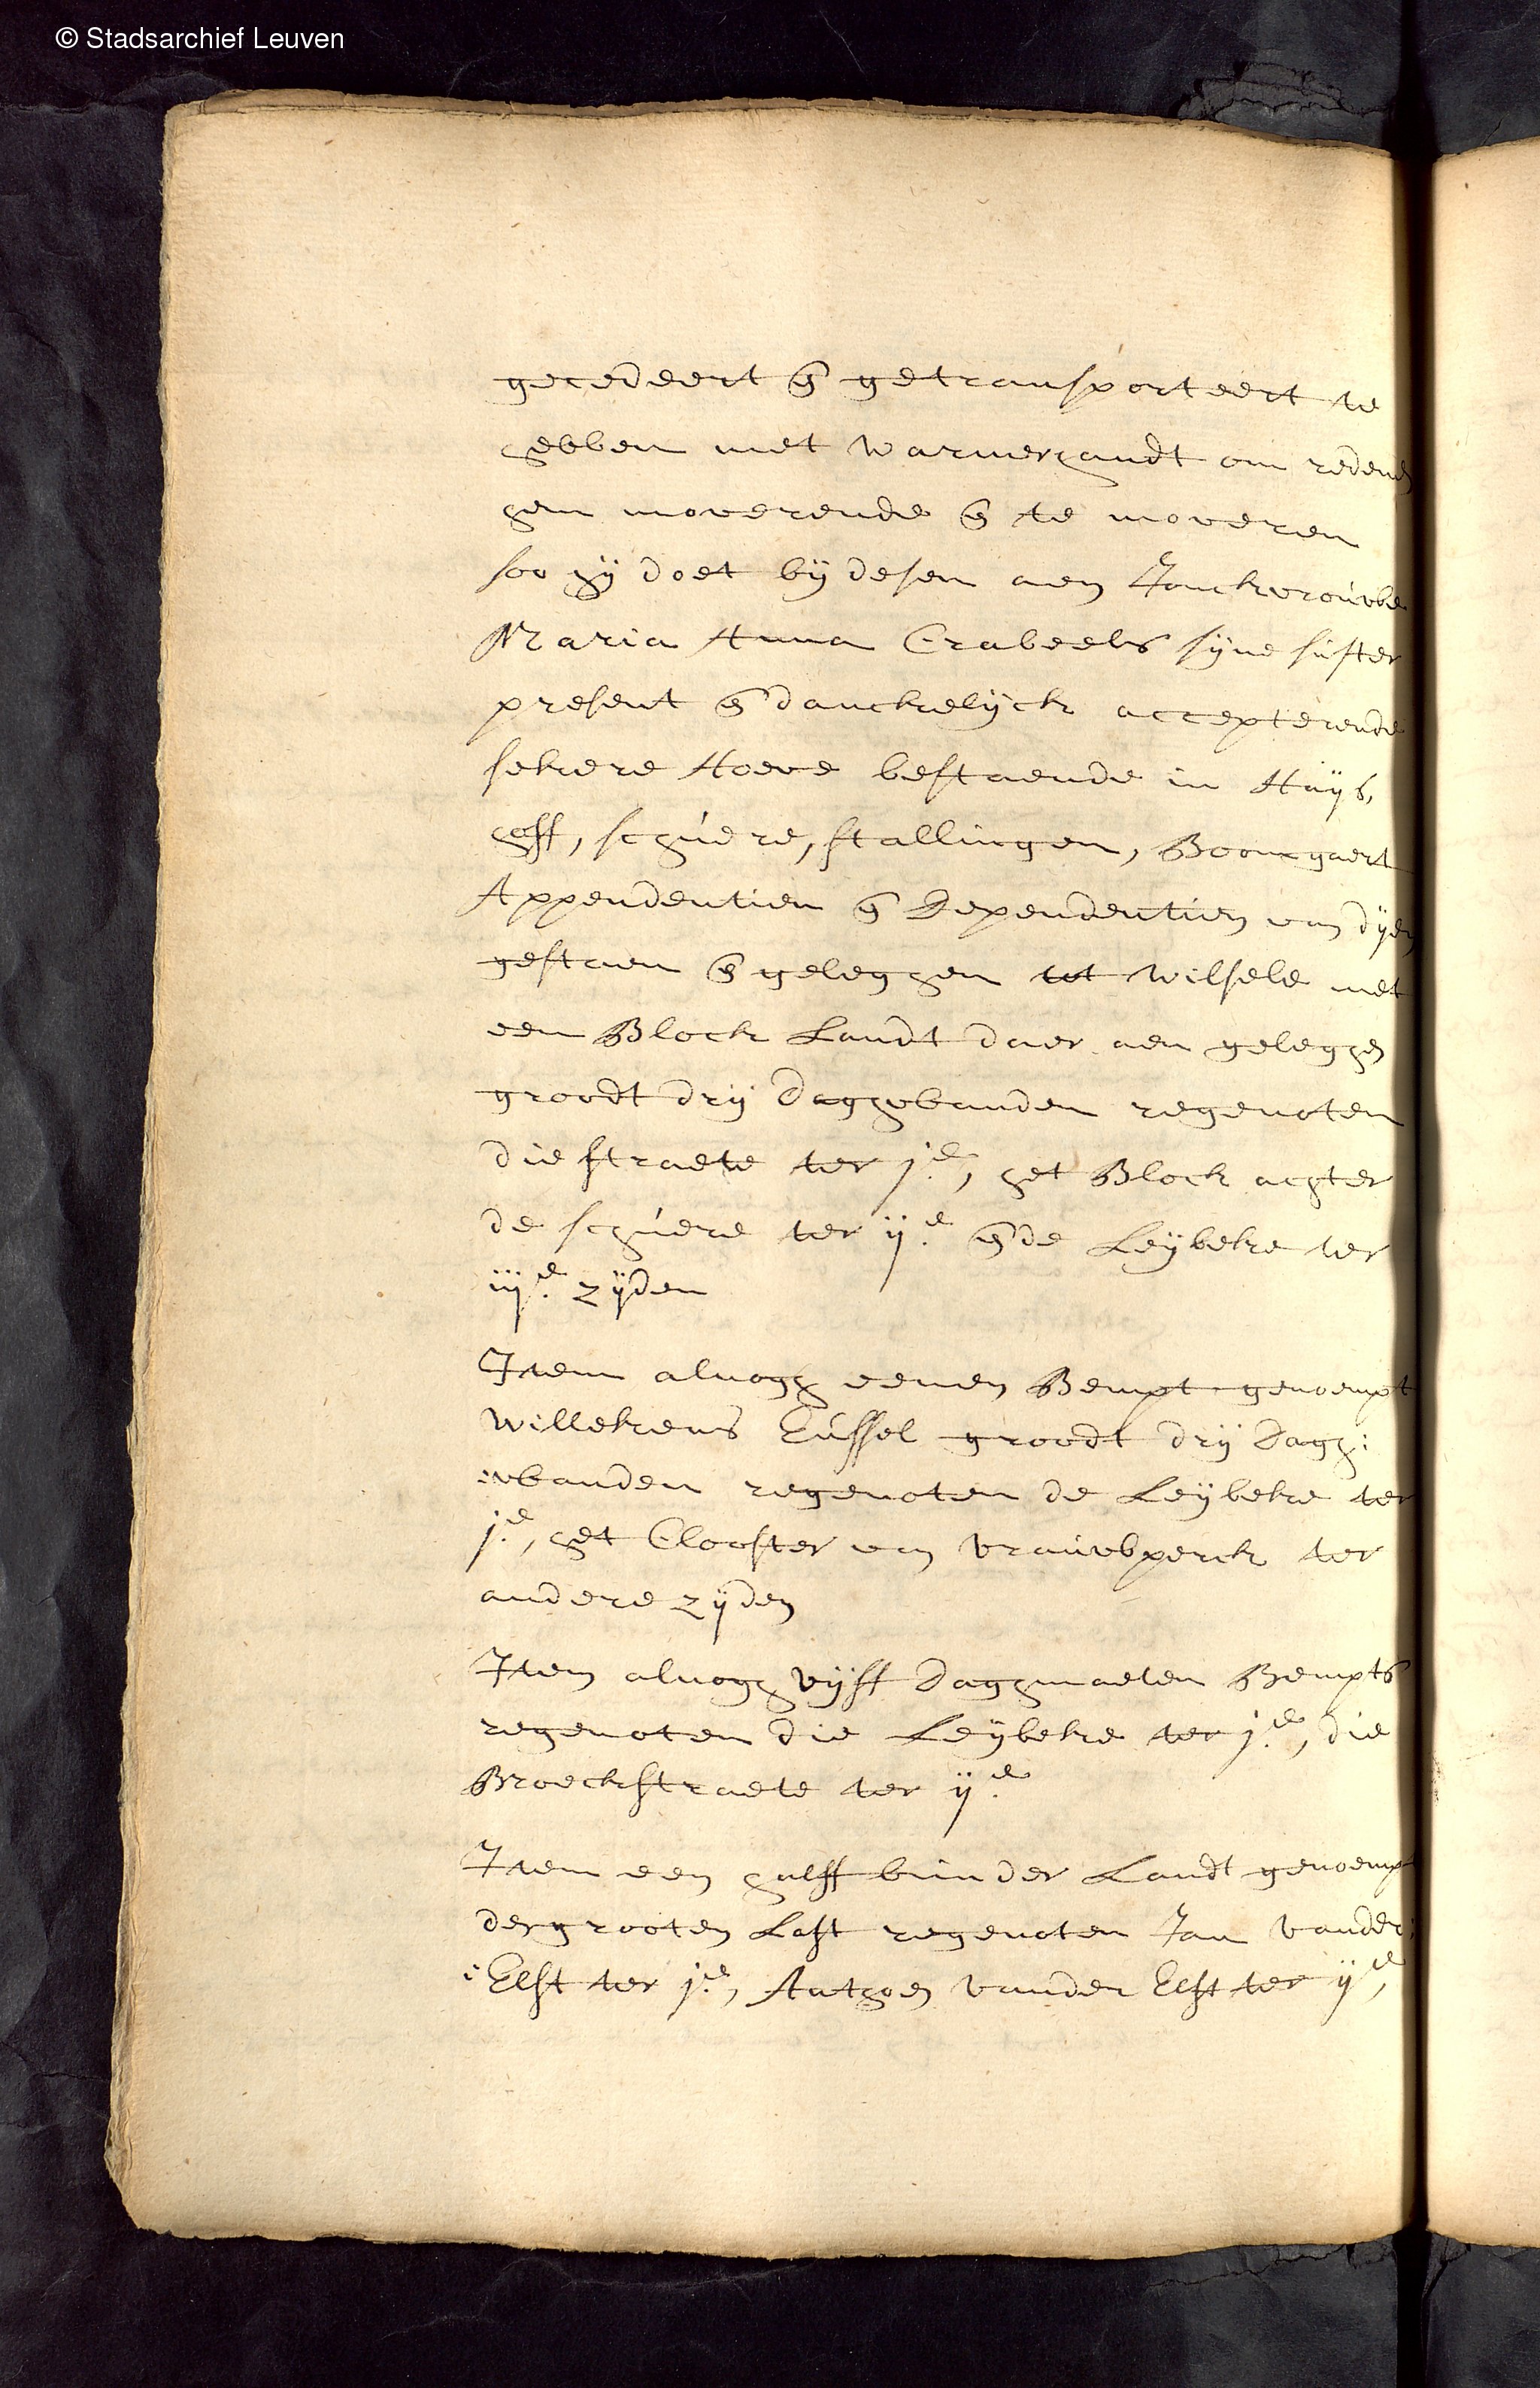 © Stadsarchief Leuven
gecedeert en getransporteert te
hebben met warnerhandt om redenen
hem moverende en te moveren
soo hij doet bij desen aen Jouckvrouwe
Maria Anna Crabeels sijne suster
present en danckelijck accepterende
sekere Hoeve bestaende in Huijs,
hoff, schuere, stallingen, Boomgaert
Appendentien en Dependentien van dijen
gestaen en geleghen tot Wilsele met
een Block Landt daer aen geleghen
groodt drij daghwanden regenoten
die straete ter j.e, het Block achter
de schuere ter ij.e en de Leijbeke ter
iij.e zijden
Item alnogh eenen Bempt genoempt
Willekens Eussel groodt drij dagh:
:wanden regenoten de Leijbeke ter
j.e, het Clooster van Vrouwperck ter
andere zijden
Item alnogh vijff daghmaelen Bempts
regenoten die Leijbeke ter j.e, die
Broeckstraete ter ij.e
Item een halff bunder Landt genoempt
den grooten Last regenoten Jan Vander:
:Elst ter j.e, Anthoen Vander Elst ter ij.e,